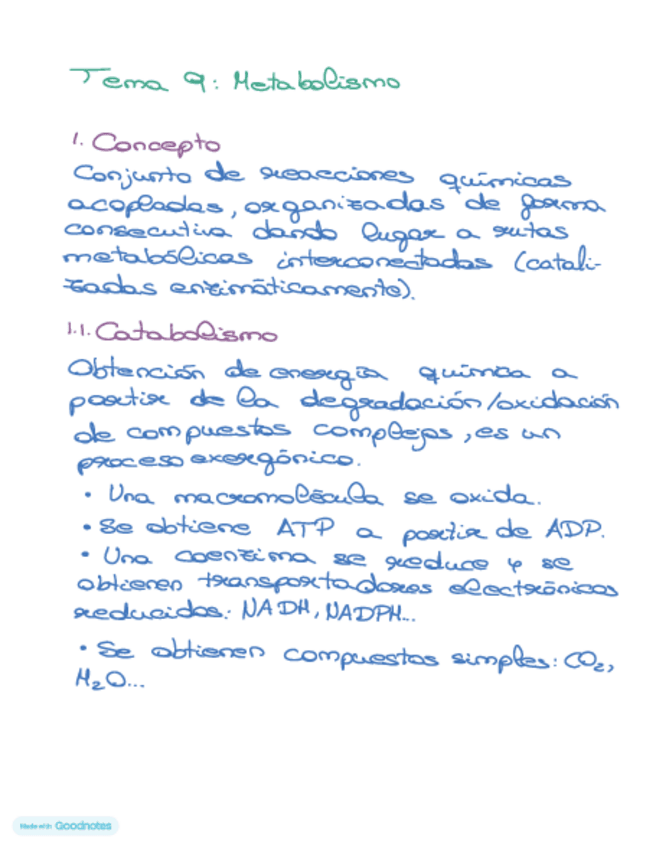 Tema 9: Metabolismo
1. Concepto
Conjunto de reacciones químicas
acopladas, organizadas de forma
consecutiva dando lugar a rutas
metabólicas interconectadas (catali-
zadas enzimáticamente).
1.1. Catabolismo
Obtención de energía química a
partir de la degradación/oxidación
de compuestos complejos, es un
proceso exergónico.
• Una macromolécula se oxida.
• Se obtiene ATP a partir de ADP.
• Una coenzima se reduce y se
obtienen transportadores electrónicos
reducidos: NADH, NADPH...
• Se obtienen compuestos simples: CO₂,
H₂O...
Made with Goodnotes